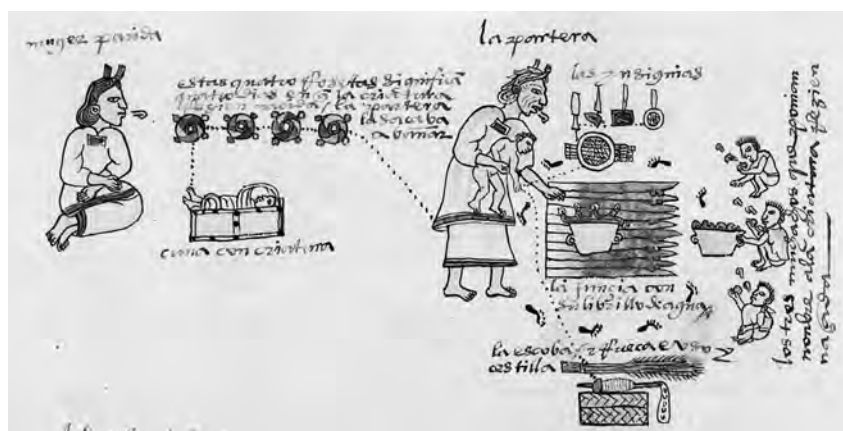 muger parida
la partera
estas quatro rrosetas significã
quatro dias en q̃ la criatura
rrezien nacida / la partera
la sacaba
a bañar
las ynsignias
cuna con criatura
la juncia con
su librillo de agua
la escoba y rrueca e uso y
cestilla
los tres muchachos que
nonbre a la criatura rrezien
naçida